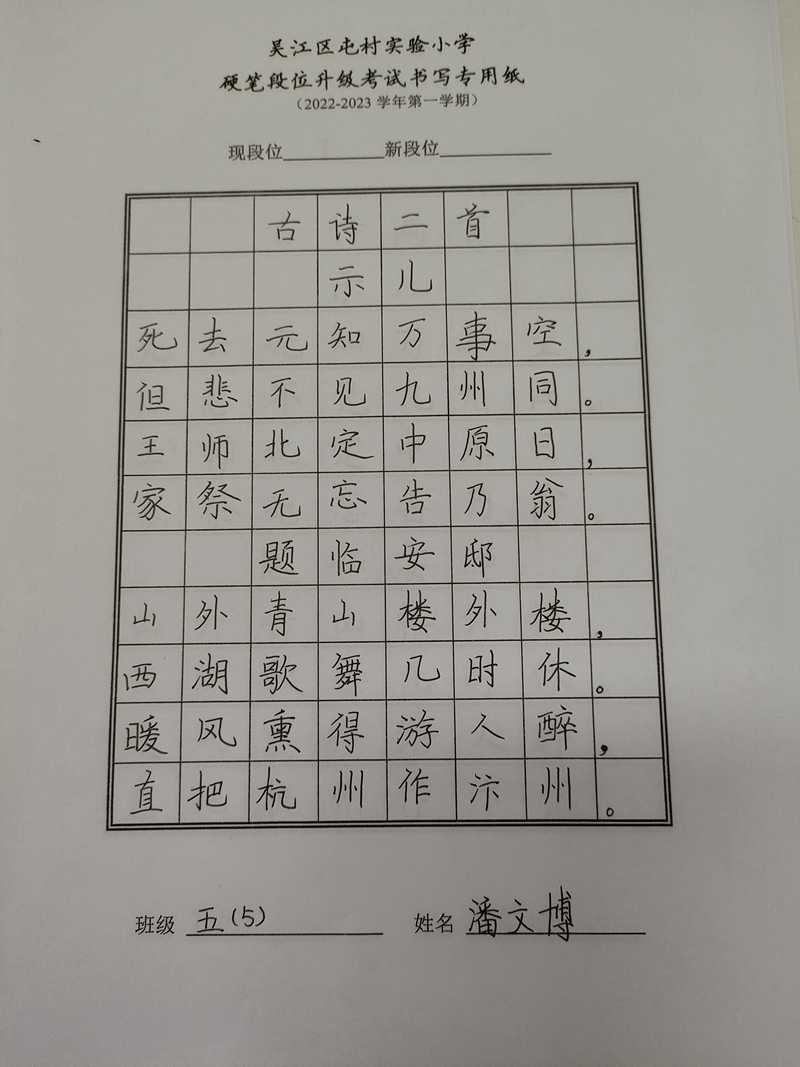 吴江区屯村实验小学
硬笔段位升级考试书写专用纸
（2022-2023 学年第一学期）
现段位__________新段位__________
古诗二首
示儿
死去元知万事空，
但悲不见九州同。
王师北定中原日，
家祭无忘告乃翁。
题临安邸
山外青山楼外楼，
西湖歌舞几时休。
暖风熏得游人醉，
直把杭州作汴州。
班级 五(5) 姓名 潘文博